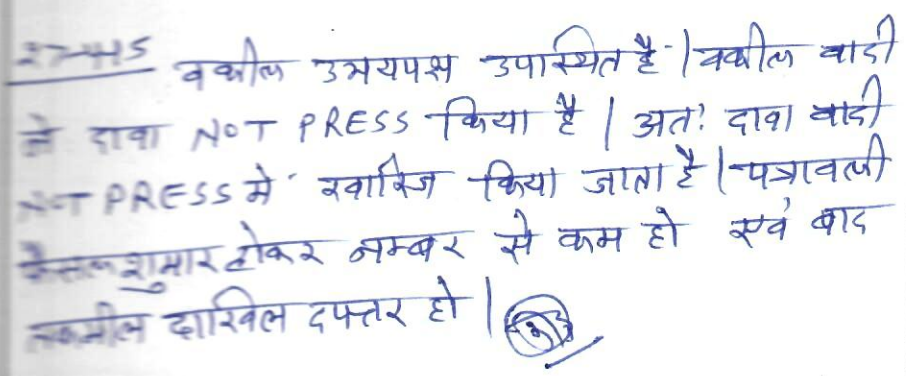 वकील उभयपक्ष उपास्थित है | वकील वादी
ने दावा NOT PRESS किया है | अतः दावा वादी
NOT PRESS मे खारिज किया जाता है | पत्रावली
फैसल शुमार होकर नम्बर से कम हो एवं बाद
तकमील दाखिल दफ्तर हो |